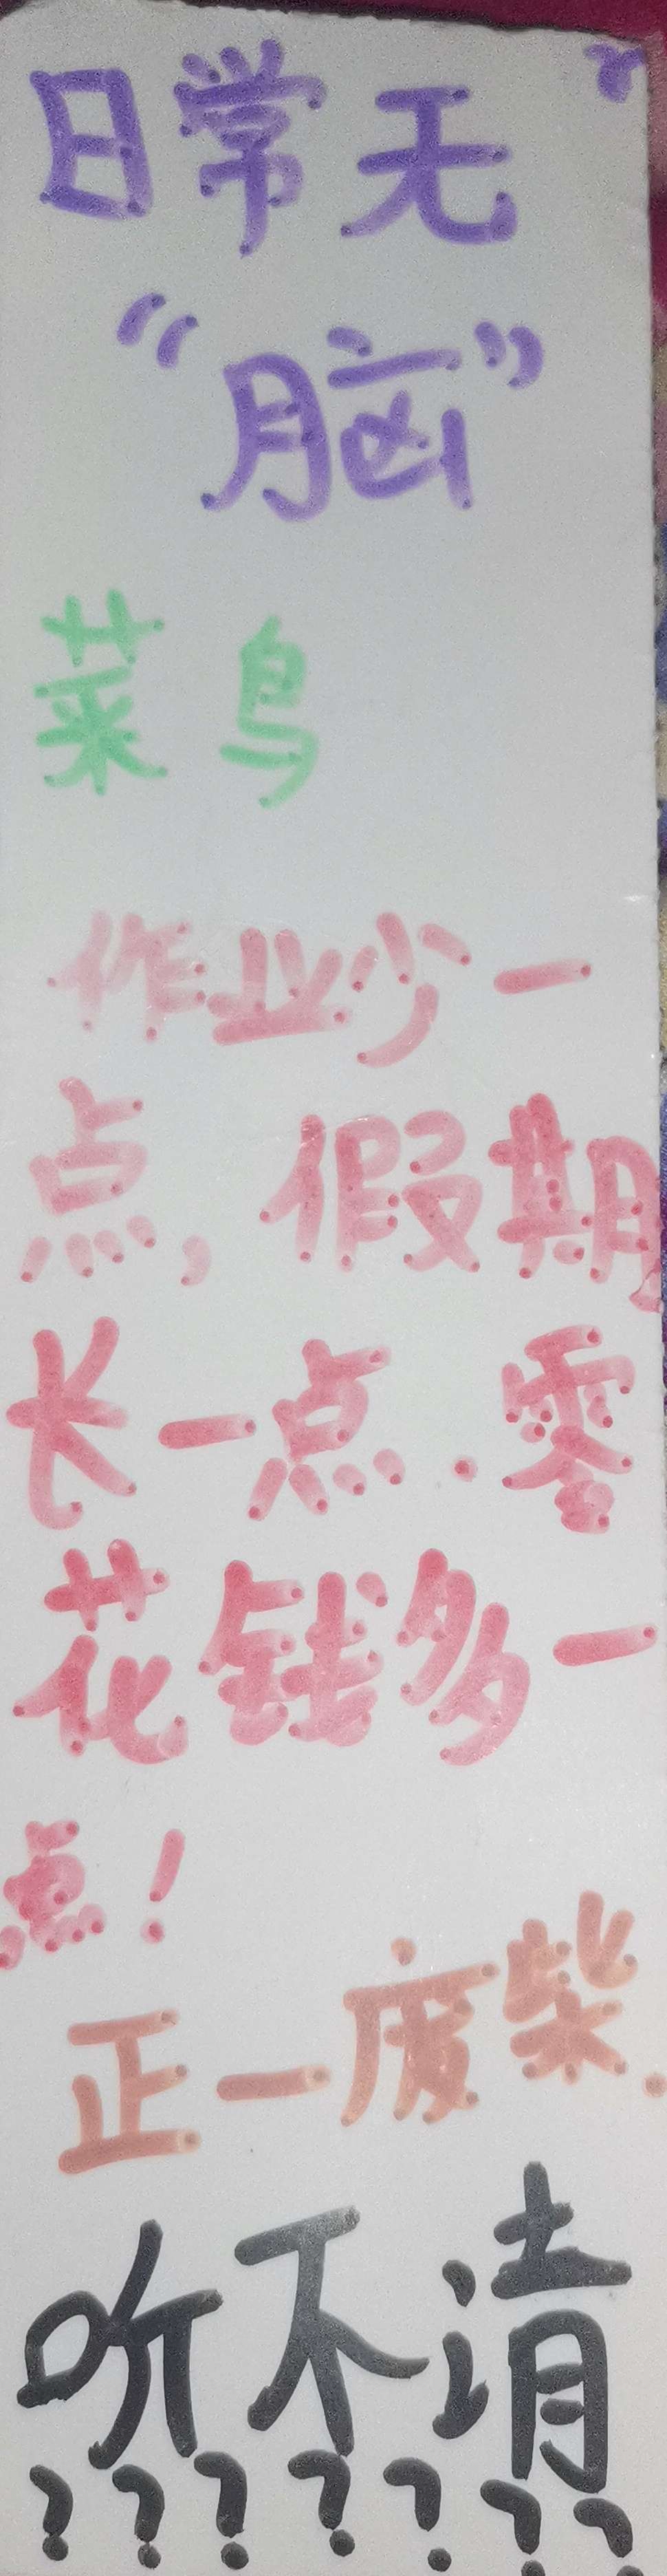 日常无
“脑”
菜鸟
作业少一
点，假期
长一点.零
花钱多一
点！
正一废柴.
听不清
???????